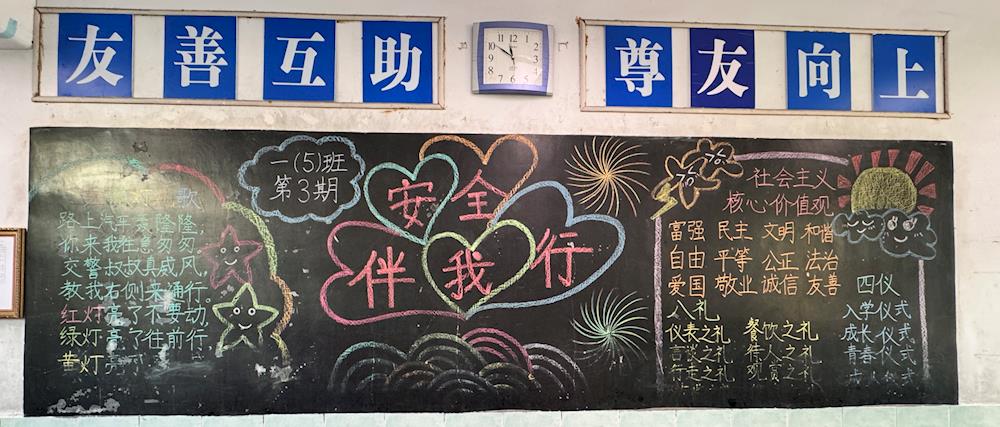 友善互助
尊友向上
一(5)班
第3期
安全
伴我行
歌
路上汽车轰隆隆,
你来我往急匆匆,
交警叔叔真威风,
教我右侧来通行。
红灯亮了不要动,
绿灯亮了往前行
黄灯亮
社会主义
核心价值观
富强 民主 文明 和谐
自由 平等 公正 法治
爱国 敬业 诚信 友善
八礼
仪表之礼 餐饮之礼
言谈之礼 待人之礼
行走之礼 观赏之礼
四仪
入学仪式
成长仪式
青春仪式
仪式